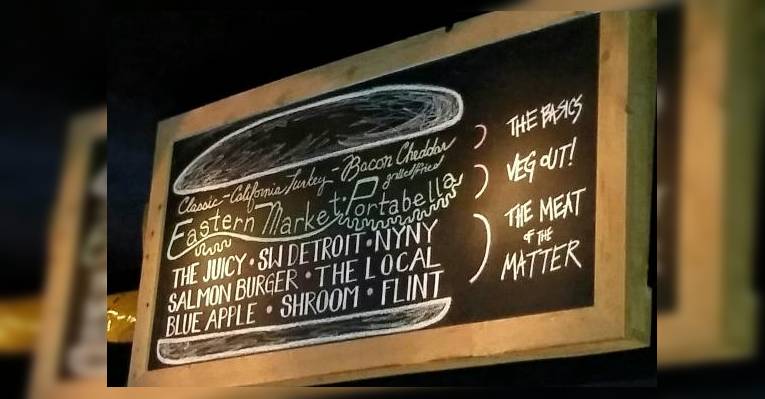 Classic - California Turkey - Bacon Cheddar
grilled/fried
Eastern Market · Portabella
THE JUICY · SW DETROIT · NYNY
SALMON BURGER · THE LOCAL
BLUE APPLE · SHROOM · FLINT
THE BASICS
VEG OUT!
THE MEAT
OF THE
MATTER